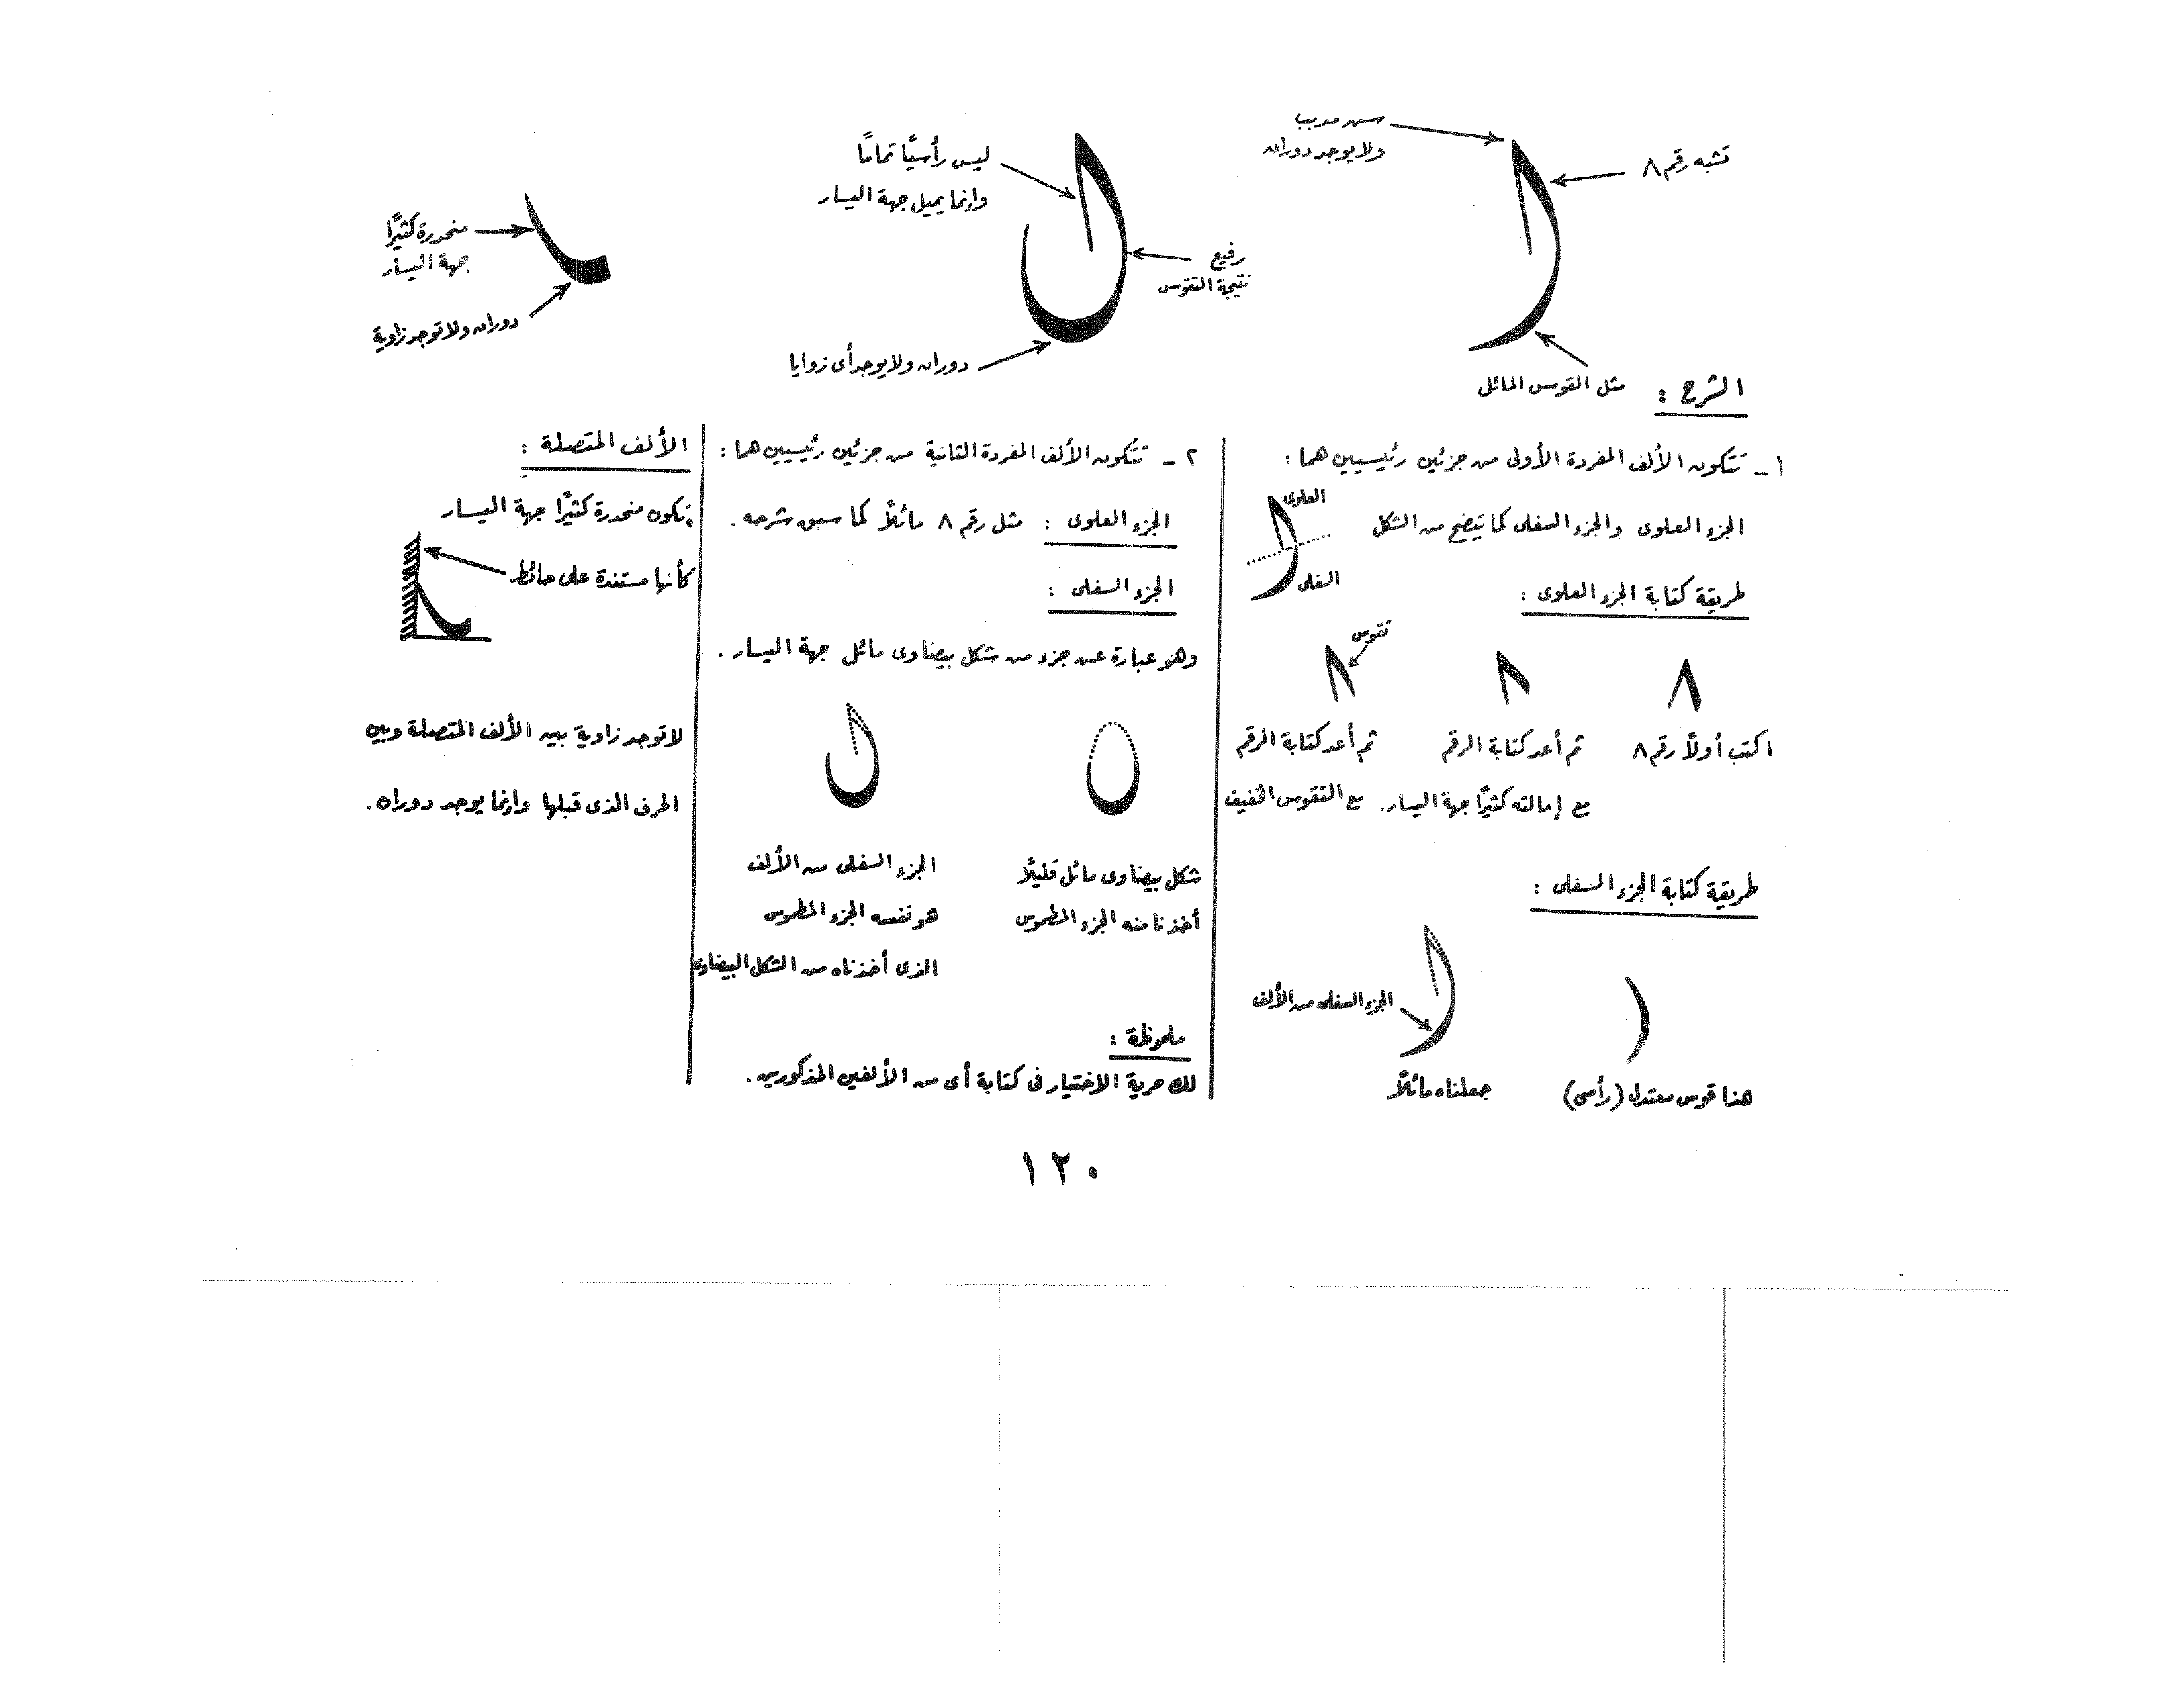 تشبه رقم ٨
سن مدبب
ولا يوجد دوران
مثل القوس المائل
ليس رأسيًا تمامًا
وإنما يميل جهة اليسار
رفيع
نتيجة التقوس
دوران ولا يوجد أى زوايا
منحدرة كثيرًا
جهة اليسار
دوران ولا توجد زاوية
الشرح :
١ - تتكون الألف المفردة الأولى من جزئين رئيسيين هما :
الجزء العلوى والجزء السفلى كما يتضح من الشكل
العلوى
السفلى
طريقة كتابة الجزء العلوى :
تقوس
٨
اكتب أولاً رقم ٨
ثم أعد كتابة الرقم
مع إمالته كثيرًا جهة اليسار.
ثم أعد كتابة الرقم
مع التقوس الخفيف
طريقة كتابة الجزء السفلى :
الجزء السفلى من الألف
هذا قوس معتدل (رأسى)
جعلناه مائلاً
٢ - تتكون الألف المفردة الثانية من جزئين رئيسيين هما :
الجزء العلوى : مثل رقم ٨ مائلاً كما سبق شرحه .
الجزء السفلى :
وهو عبارة عن جزء من شكل بيضاوى مائل جهة اليسار .
شكل بيضاوى مائل قليلاً
أخذنا منه الجزء المطموس
الجزء السفلى من الألف
هو نفسه الجزء المطموس
الذى أخذناه من الشكل البيضاوى
ملحوظة :
لك حرية الاختيار فى كتابة أى من الألفين المذكورين .
الألف المتصلة :
تكون منحدرة كثيرًا جهة اليسار
كأنها مستندة على حائط
لا توجد زاوية بين الألف المتصلة وبين
الحرف الذى قبلها وإنما يوجد دوران .
١٢٠